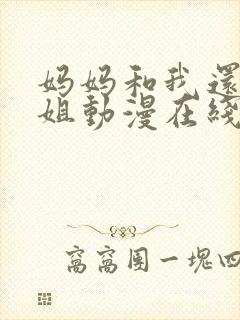 妈妈和我還
姐動漫在綫
窩窩團一塊四